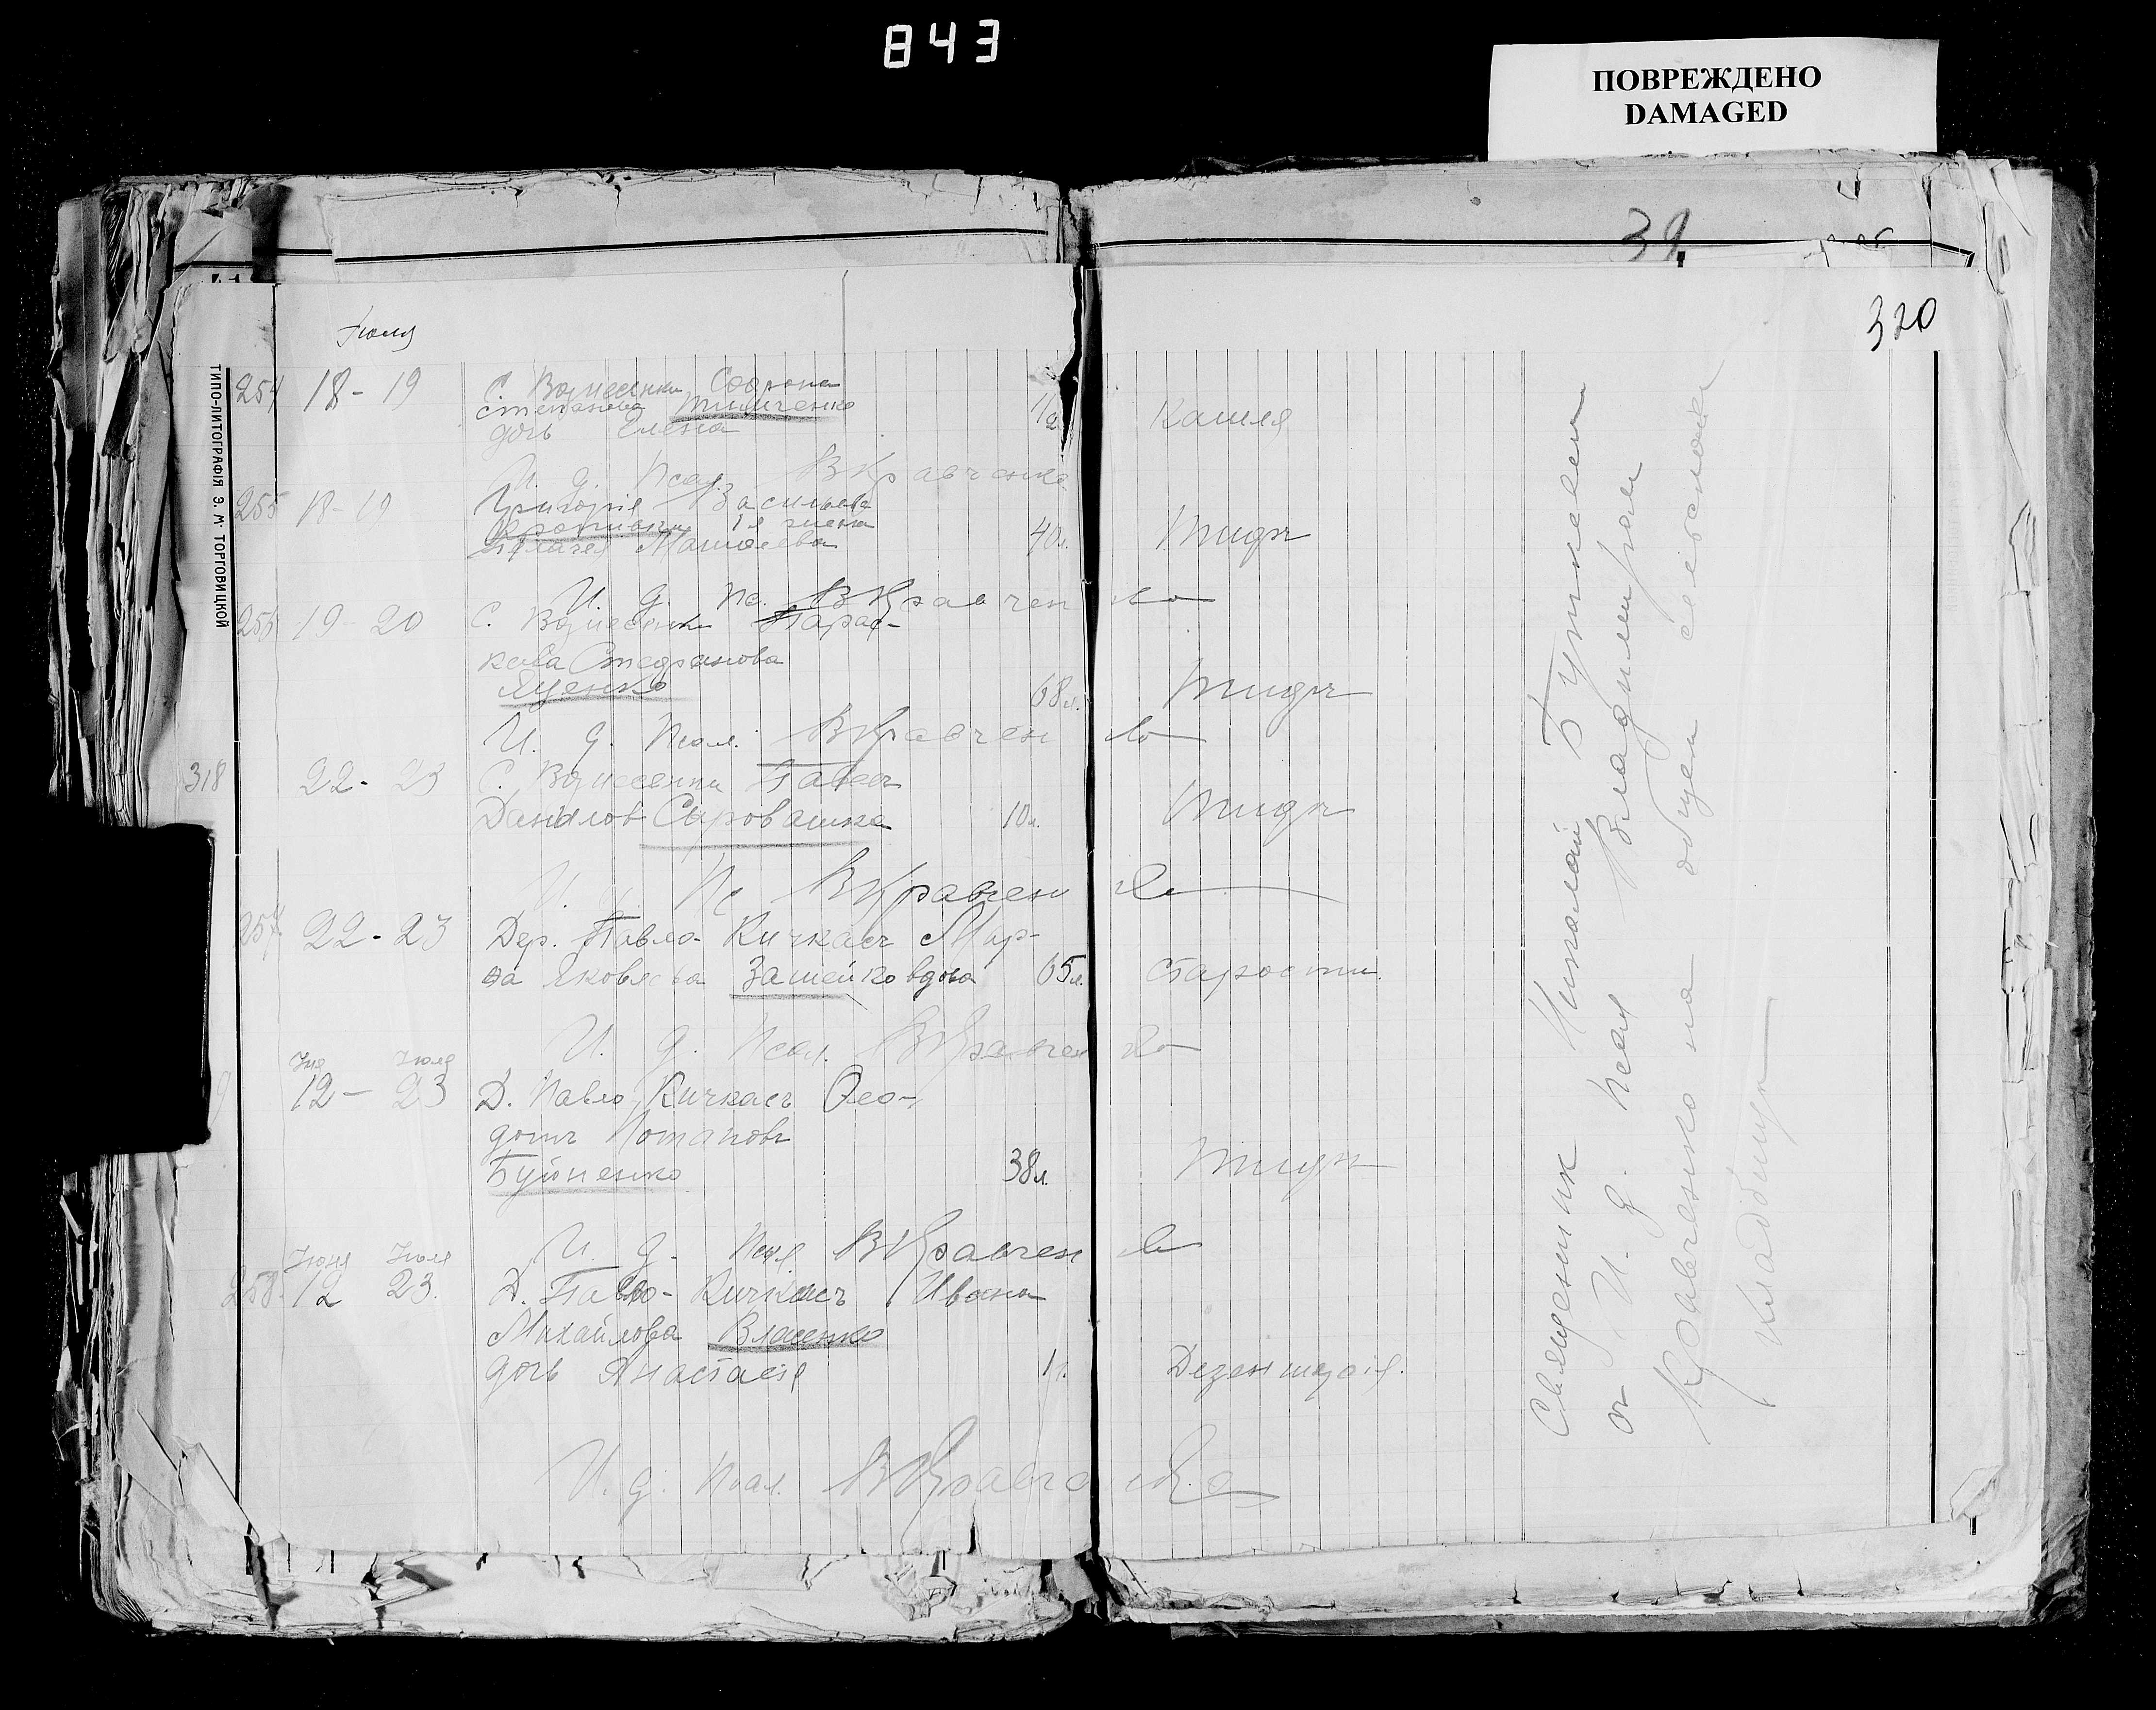 843
ПОВРЕЖДЕНО
DAMAGED
39
320
Іюля
ТИПО-ЛИТОГРАФІЯ Э. М. ТОРГОВИЦКОЙ
254 18 - 19 С. Вознесенки Софрона
Степанова Тимченко
дочь Елена 1/2 Кашля
И. д. Псал. В Кравченко
255 18 - 19 Григорія Васильева
1я жена
Пелагея 40 л. Тифъ
И. д. Пс. В Кравченко
256 19 - 20 С. Вознесенки Парас-
кева Стефанова
Яценко 68 л. Тифъ
И. д. Псал. В Кравченко
318 22 - 23 С. Вознесенки Павелъ
Данилов Сыровашка 10 л. Тифъ
И. д. Пс В Кравченко
257 22 - 23 Дер. Павло-Кичкасъ Мар-
фа Яковлева Зашейко вдова 65 л. Старости.
И. д. Псал. В Кравченко
Іюля
12 - 23 Д. Павло Кичкасъ Фео-
дотъ Потаповъ
38 л. Тифъ
И. д. Псал В Кравченко
Іюня Іюля
258. 12 23. Д. Павло-Кичкасъ Ивана
Михайлова Власенко
дочь Анастасія 1 г. Дезентерія.
И. д. Псал. В Кравченко
Священник Николай
съ И. д. Псал Владимиром
Кравченко на общем сельском
кладбищѣ